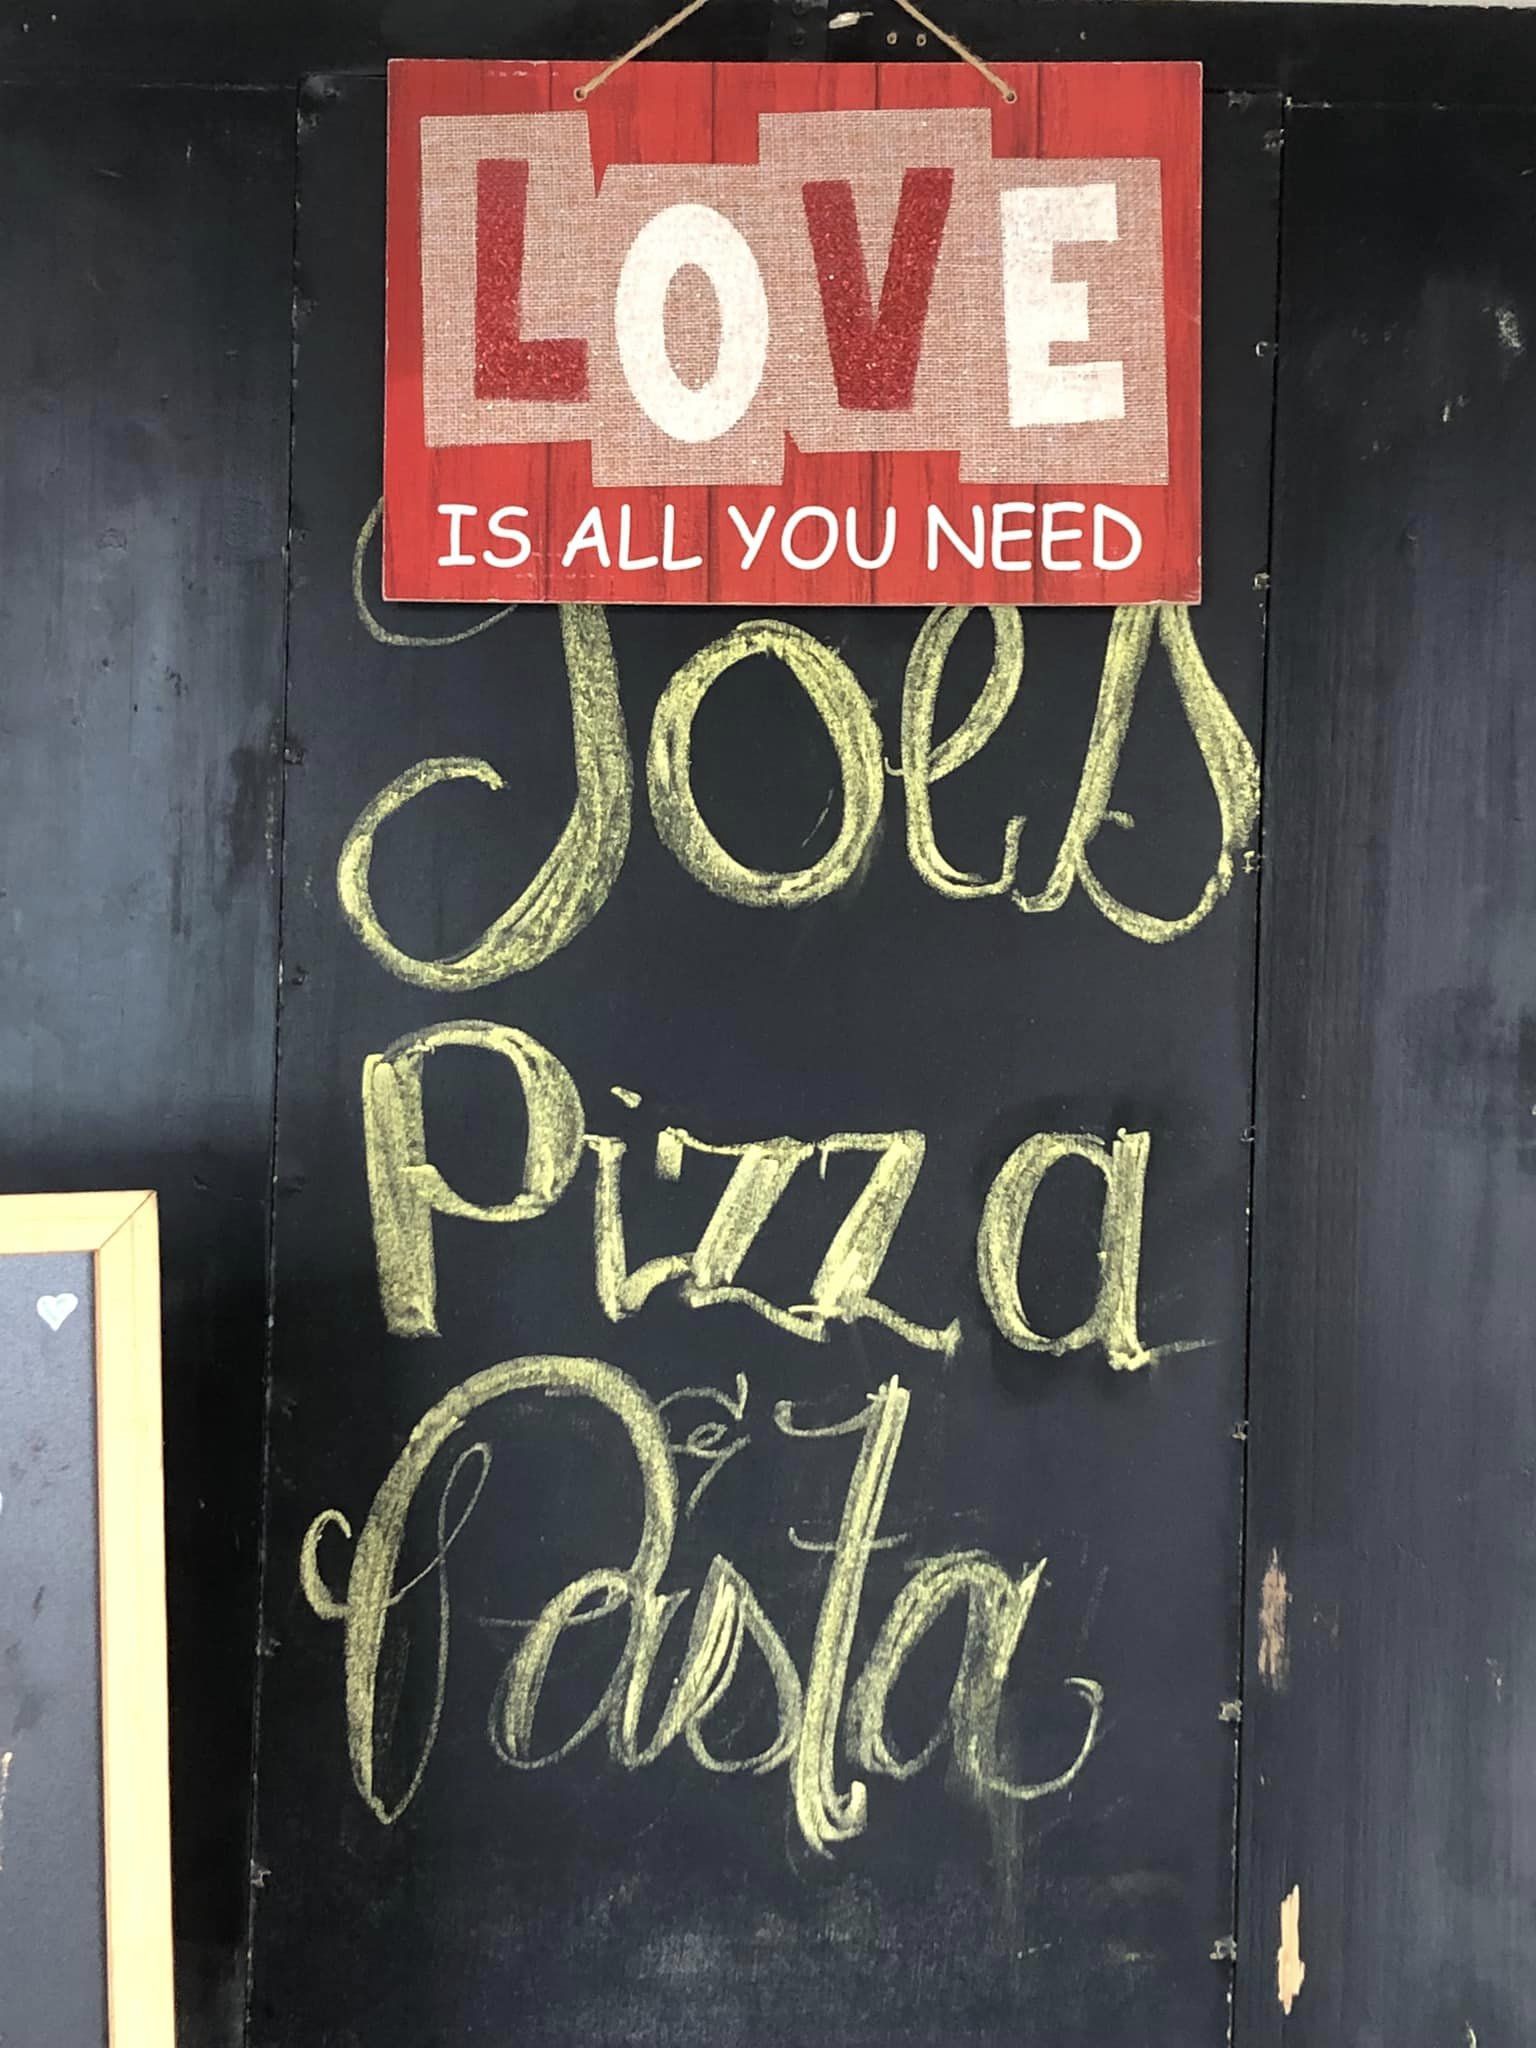 LOVE
IS ALL YOU NEED
Joes
Pizza
&
Pasta